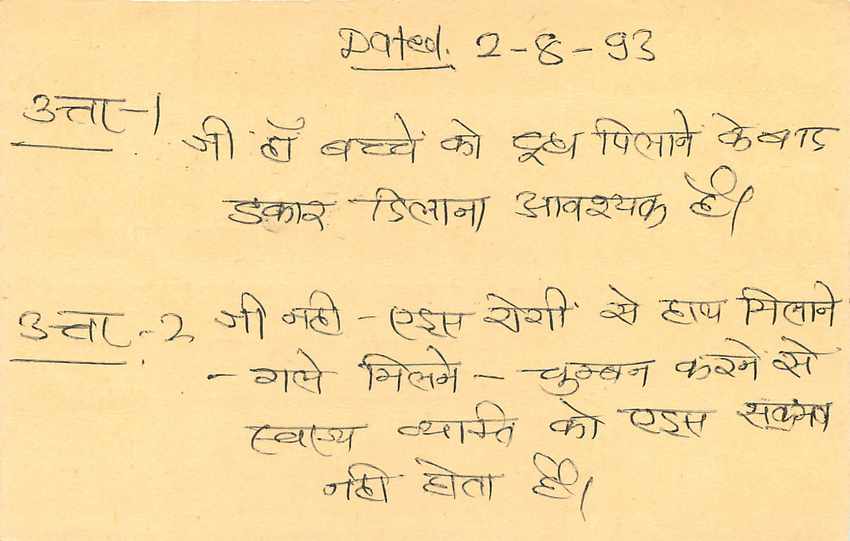 Dated. 2-8-93
उत्तर-1 जी हाँ बच्चें को दूध पिलाने के बाद
डकार दिलाना आवश्यक है।
उत्तर-2 जी नही - एड्स रोगी से हाथ मिलाने
- गले मिलने - चुम्बन करने से
स्वास्थ्य व्यक्ति को एड्स
नही होता है।